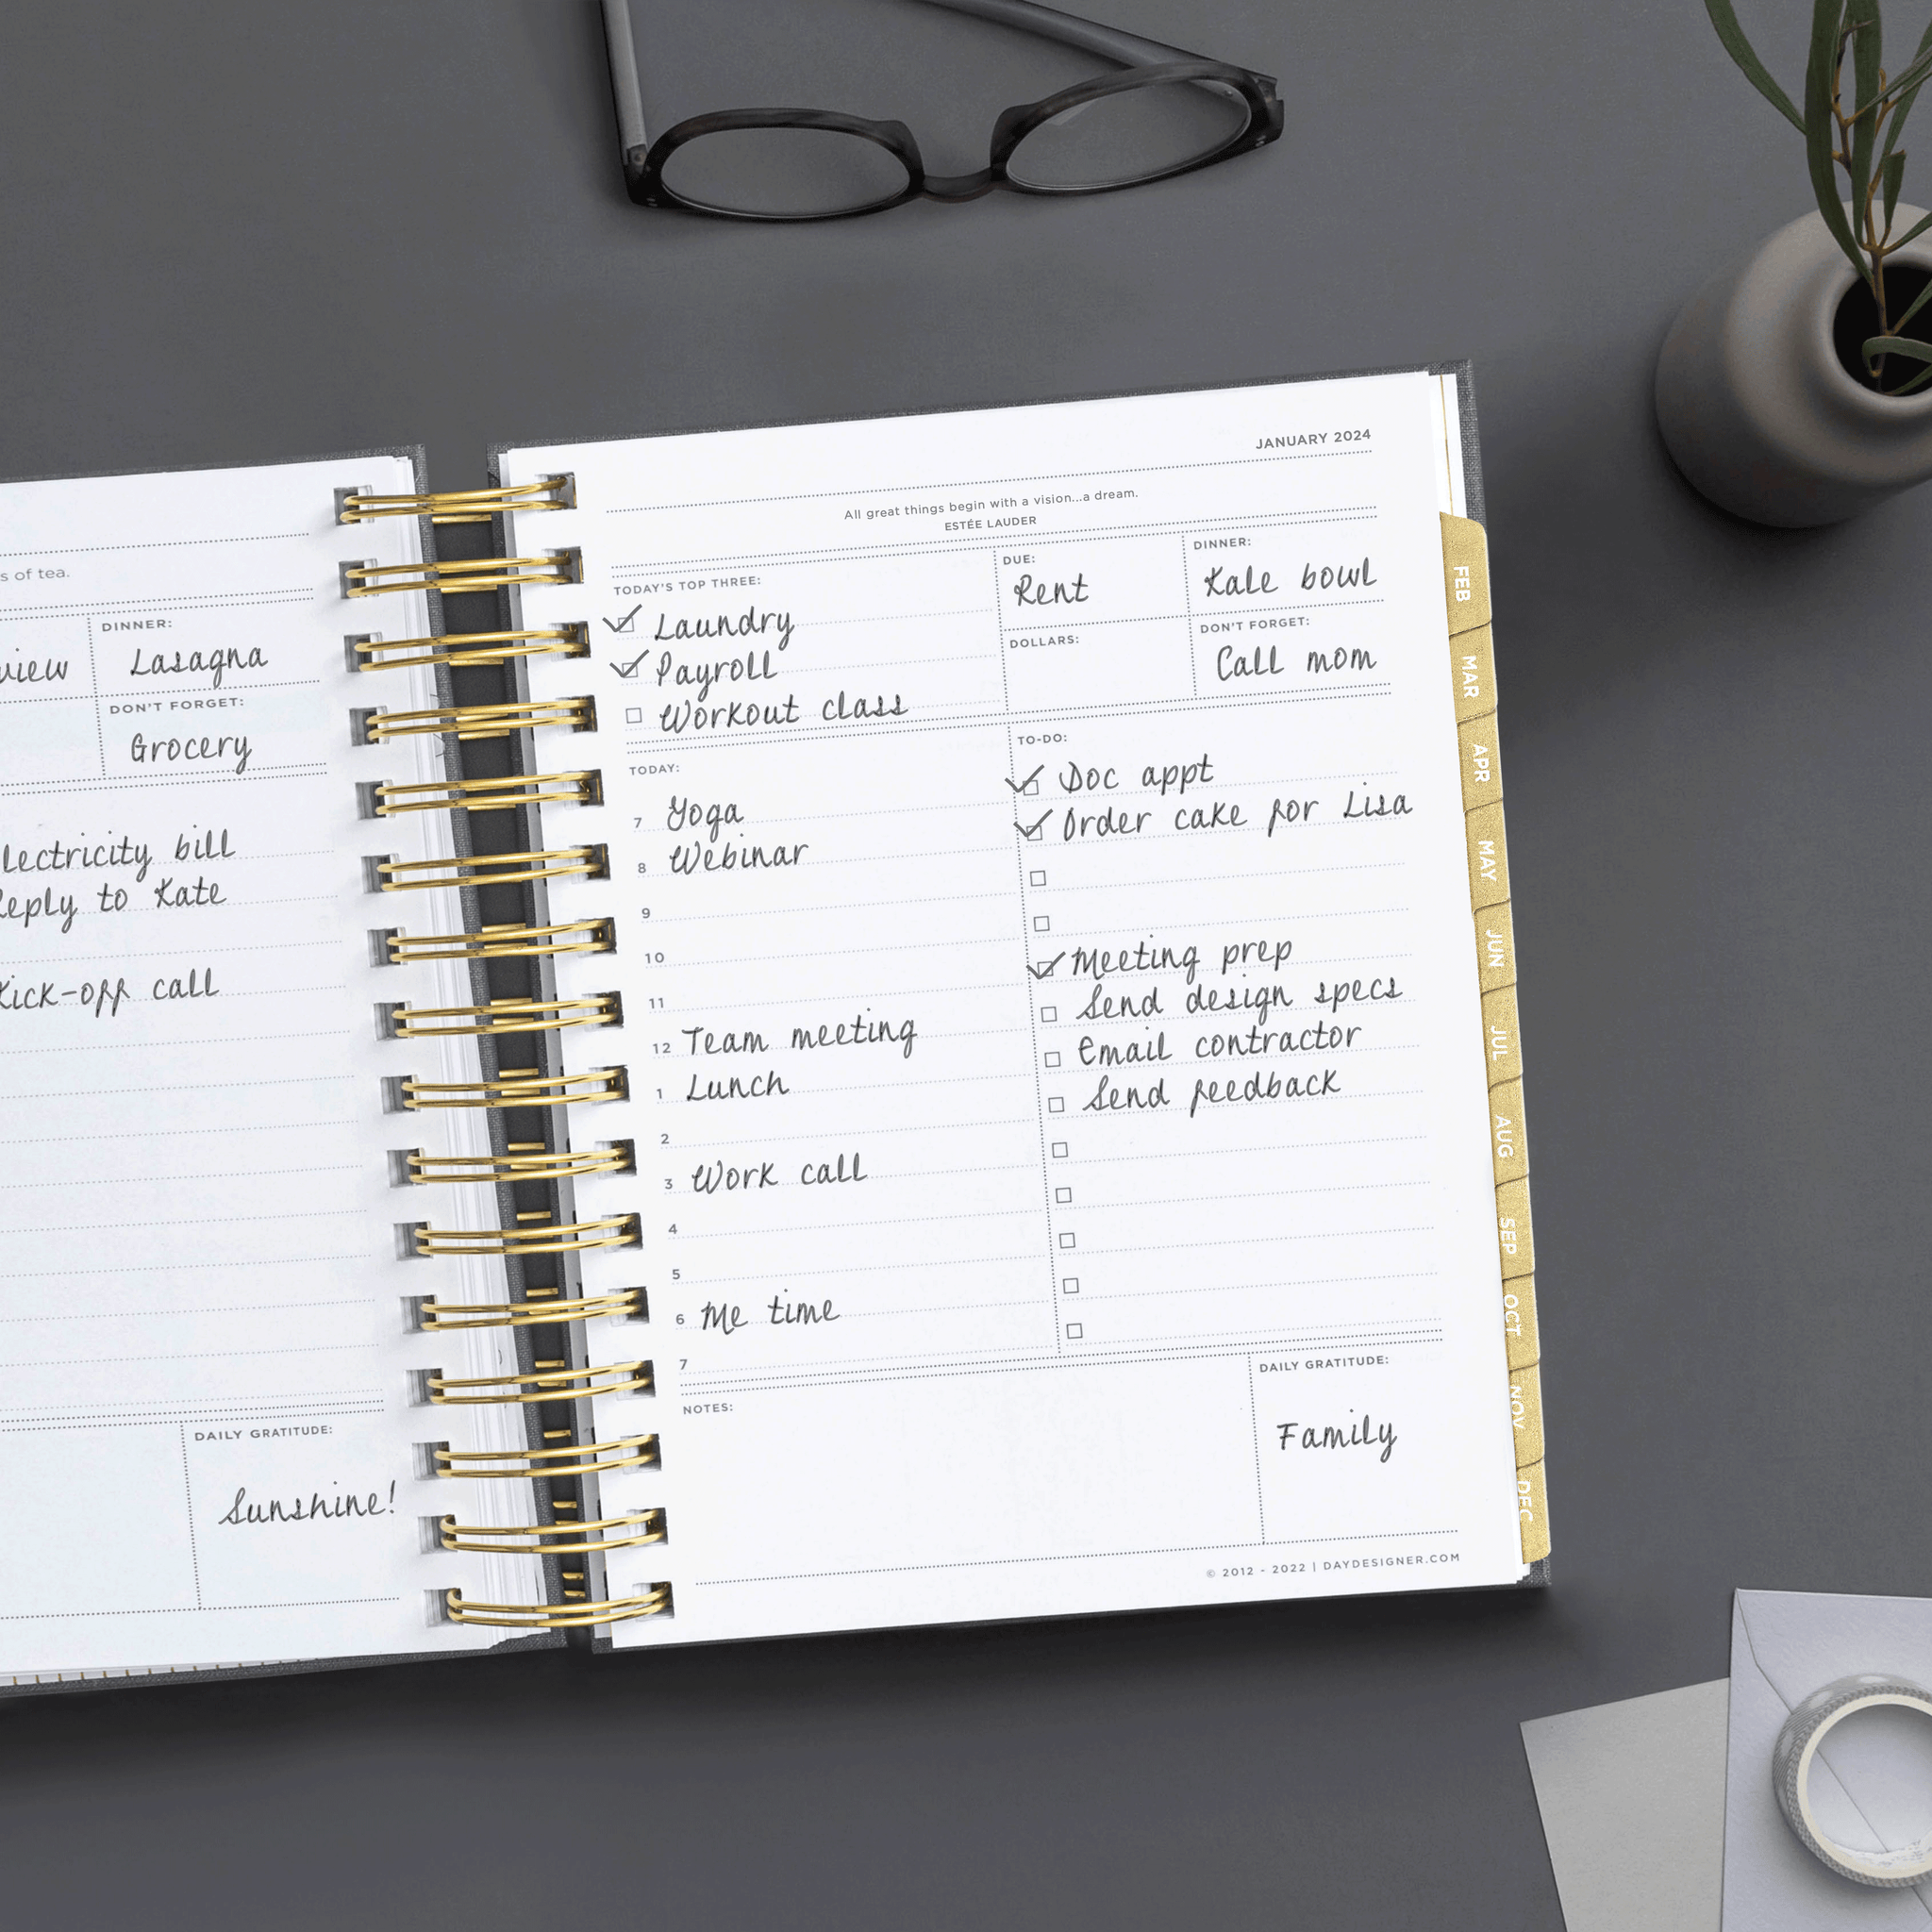 s of tea.
view
DINNER:
Lasagna
DON'T FORGET:
Grocery
lectricity bill
Reply to Kate
Kick-off call
DAILY GRATITUDE:
Sunshine!
JANUARY 2024
All great things begin with a vision...a dream.
ESTÉE LAUDER
TODAY'S TOP THREE:
Laundry
Payroll
Workout class
DUE:
Rent
DINNER:
Kale bowl
DOLLARS:
DON'T FORGET:
Call mom
TODAY:
7 Yoga
8 Webinar
9
10
11
12 Team meeting
1 Lunch
2
3 Work call
4
5
6 Me time
7
TO-DO:
Doc appt
Order cake for Lisa
Meeting prep
Send design specs
Email contractor
Send feedback
NOTES:
DAILY GRATITUDE:
Family
© 2012 - 2022 | DAYDESIGNER.COM
FEB
MAR
APR
MAY
JUN
JUL
AUG
SEP
OCT
NOV
DEC